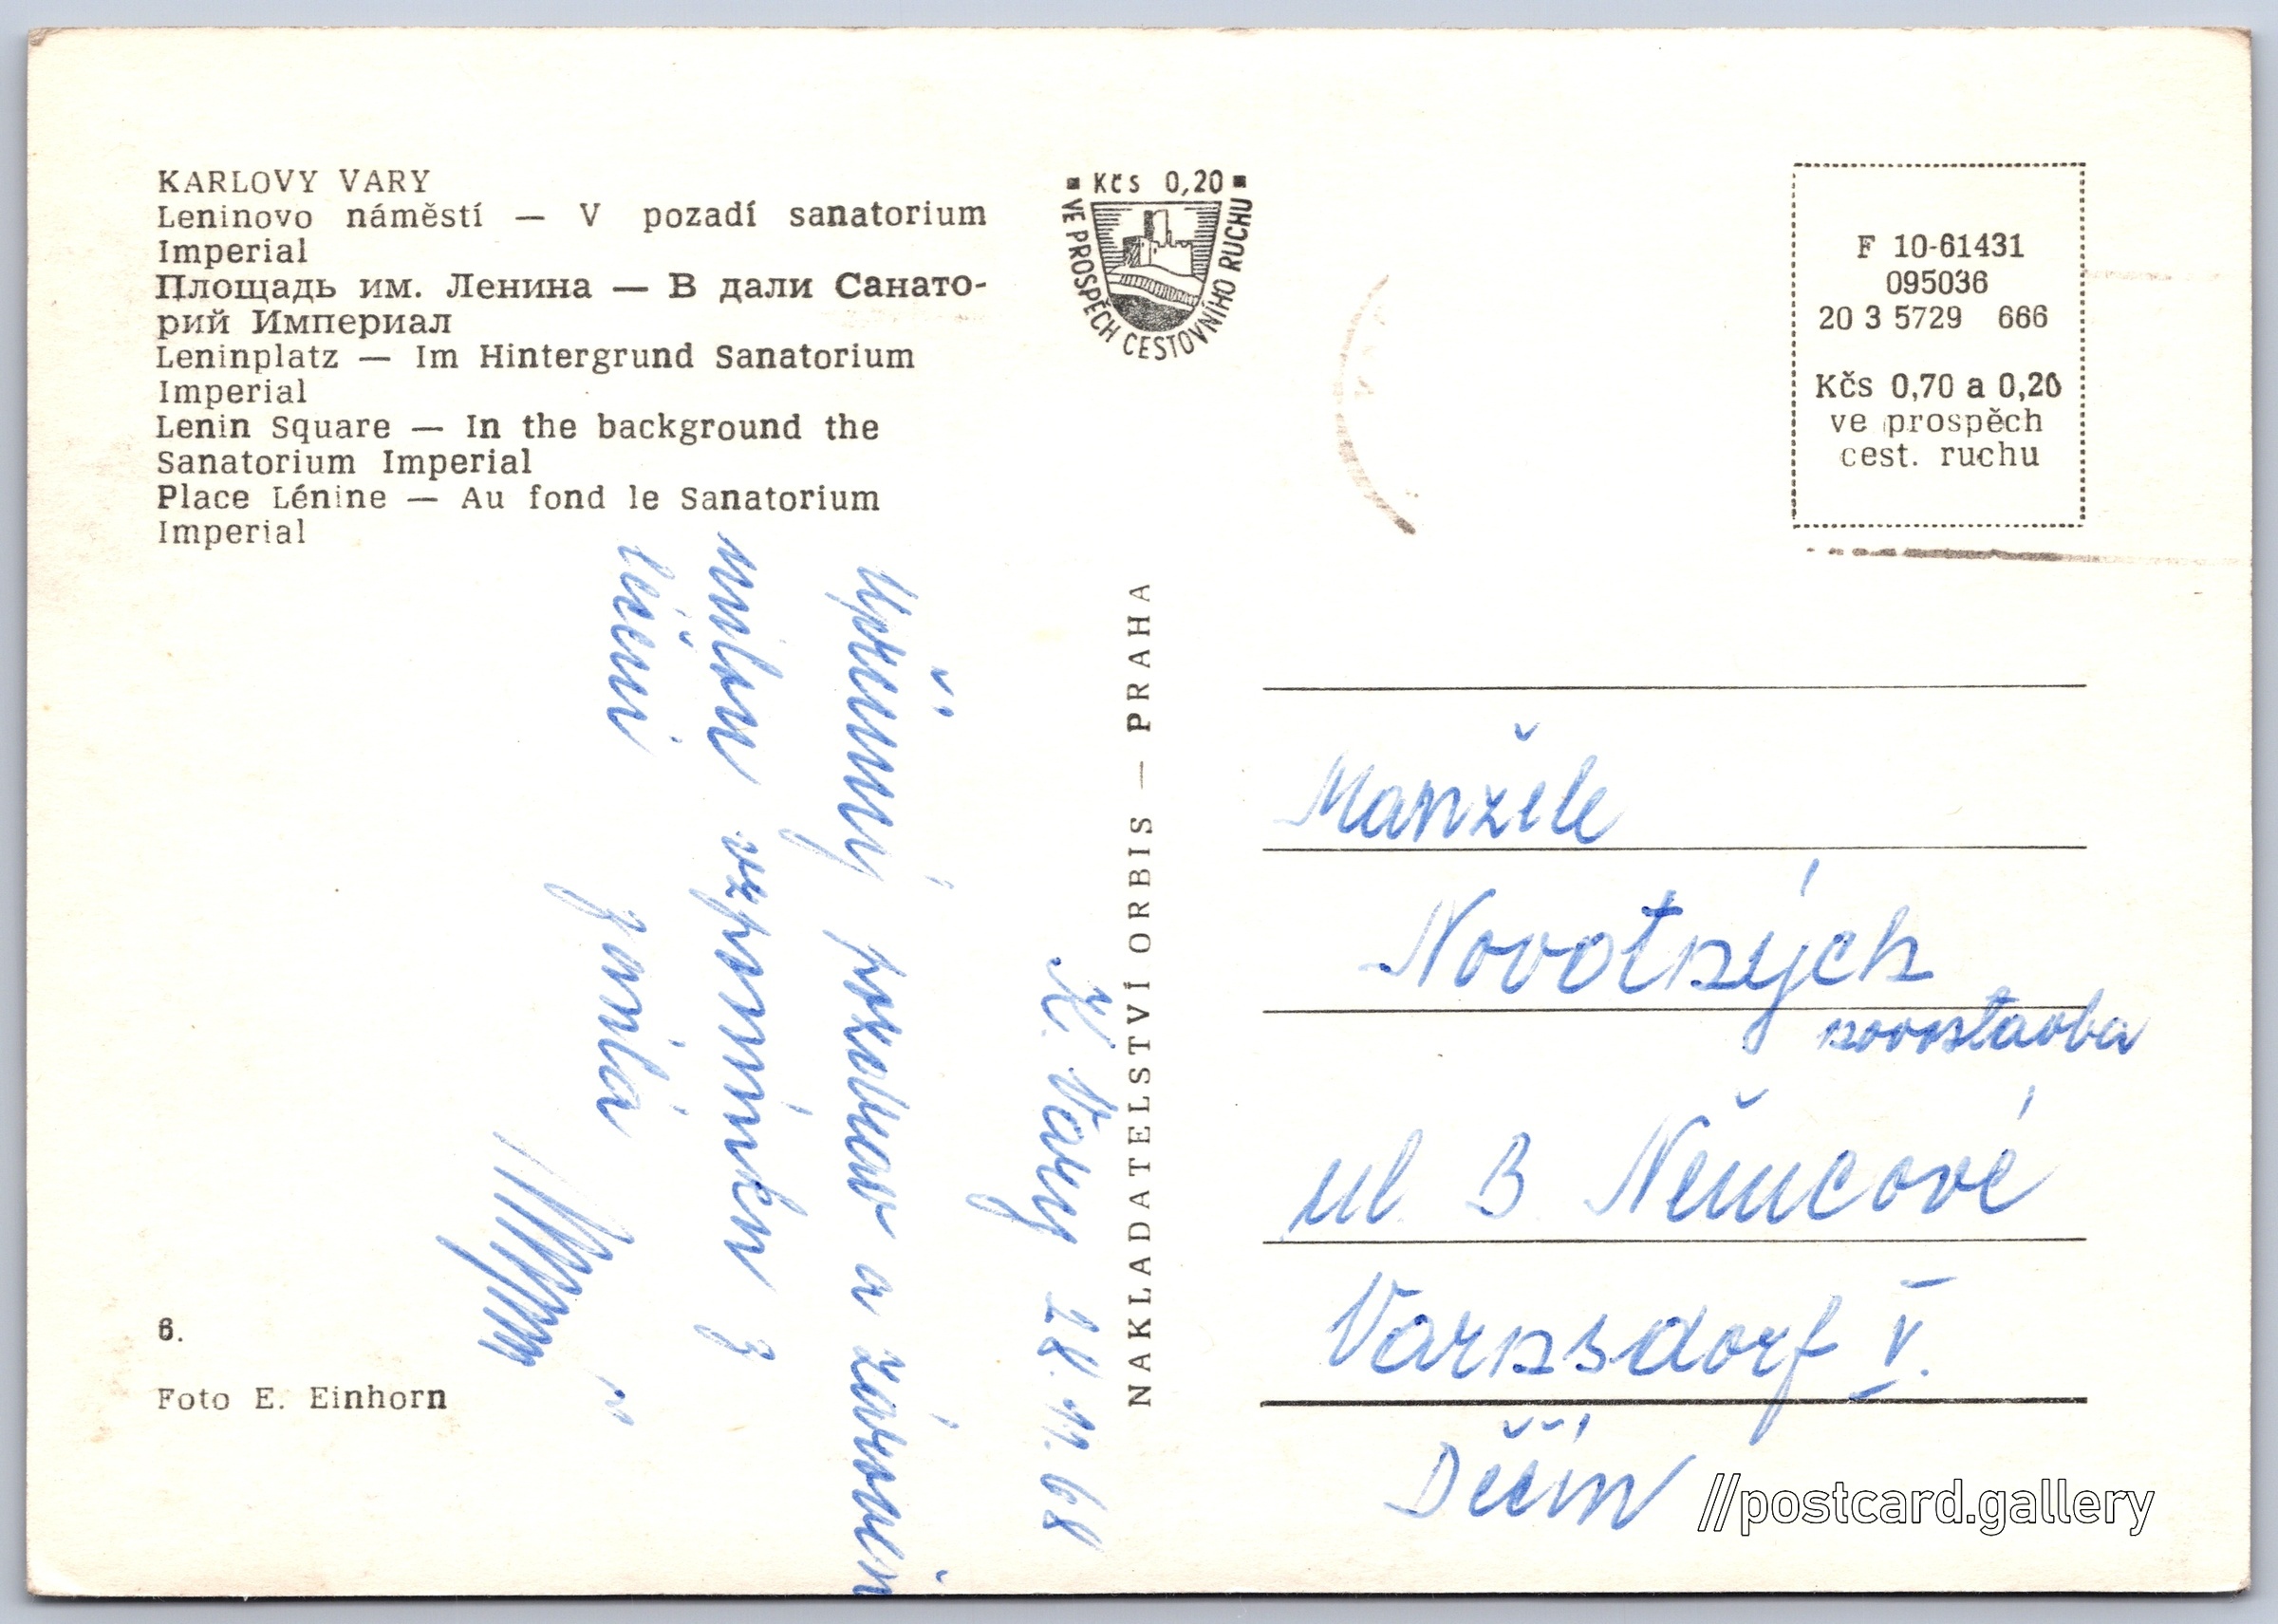 KARLOVY VARY
Leninovo náměstí — V pozadí sanatorium
Imperial
Площадь им. Ленина — В дали Санато-
рий Империал
Leninplatz — Im Hintergrund Sanatorium
Imperial
Lenin Square — In the background the
Sanatorium Imperial
Place Lénine — Au fond le Sanatorium
Imperial
▪ Kčs 0,20 ▪
VE PROSPĚCH CESTOVNÍHO RUCHU
F 10-61431
095036
20 3 5729 666
Kčs 0,70 a 0,20
ve prospěch
cest. ruchu
NAKLADATELSTVÍ ORBIS — PRAHA
K. Vary 28. 11. 68
Upřímný pozdrav a zároveň
milou vzpomínku z
léčení
Manžele
Novotných
novostavba
ul. B Němcové
Varnsdorf V.
Děčín
6.
Foto E. Einhorn
//postcard.gallery